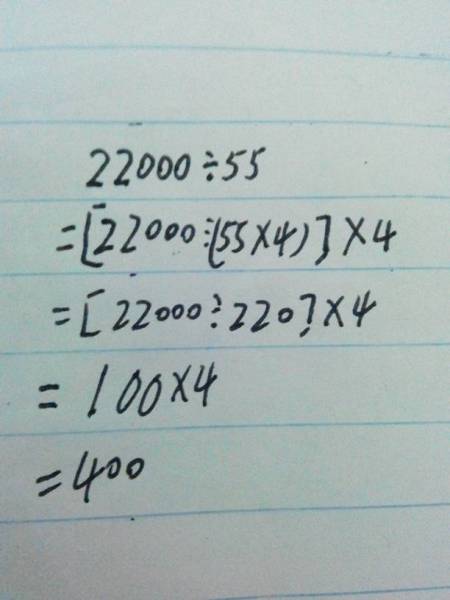 22000÷55
=[22000÷(55×4)]×4
=[22000÷220]×4
=100×4
=400